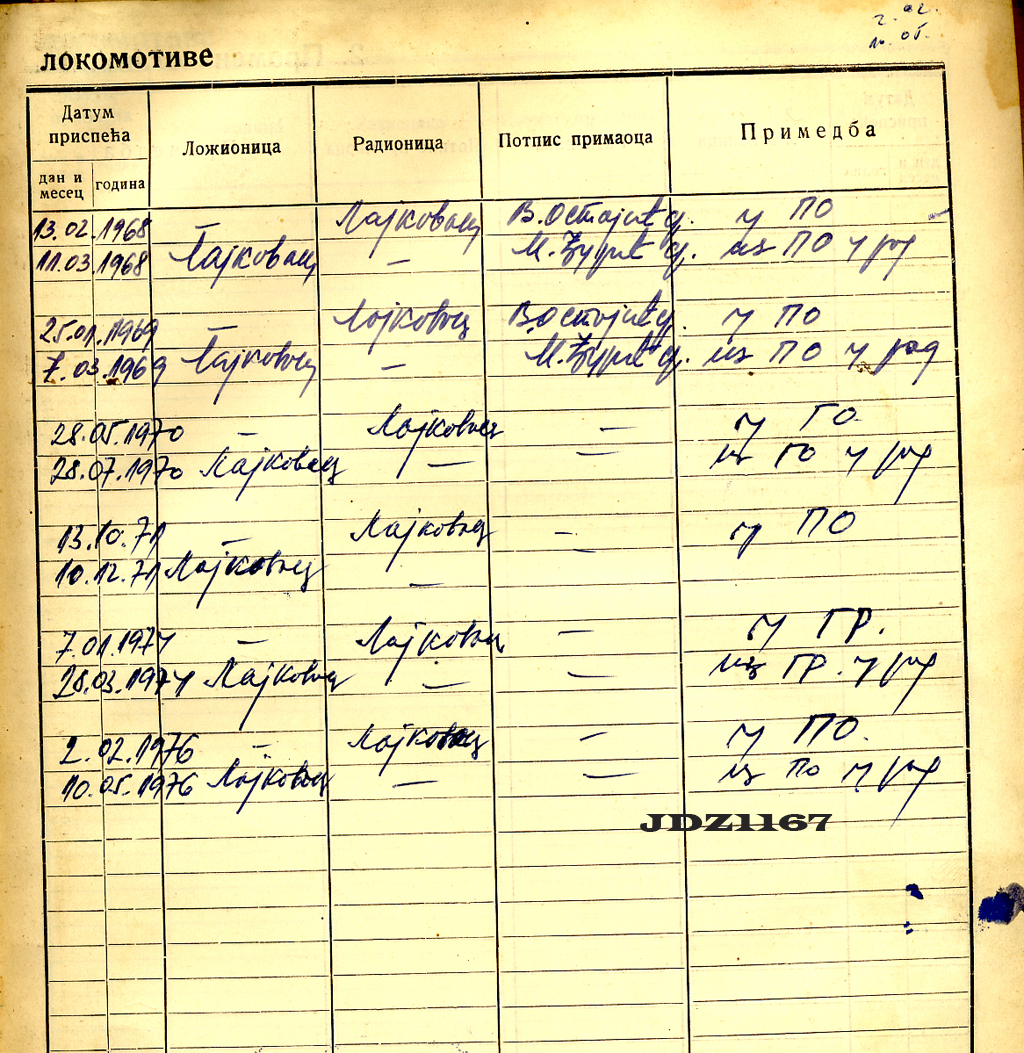 2. 02.
10. 05.
ЛОКОМОТИВЕ
Датум приспећа
Ложионица
Радионица
Потпис примаоца
Примедба
дан и месец
година
13.02.1968 — Лајковац В.Остојић у ПО
11.03.1968 Лајковац — М. из ПО у рад
25.01.1969 — Лајковац В.Остојић у ПО
7.03.1969 Лајковац — М. из ПО у рад
28.05.1970 — Лајковац — у ГО.
28.07.1970 Лајковац — — из ГО у рад
13.10.71 — Лајковац — у ПО
10.12.71 Лајковац — —
7.01.1974 — Лајковац — у ГР.
28.03.1974 Лајковац — — из ГР. у рад
2.02.1976 — Лајковац — у ПО.
10.05.1976 Лајковац — — из ПО у рад
JDZ1167